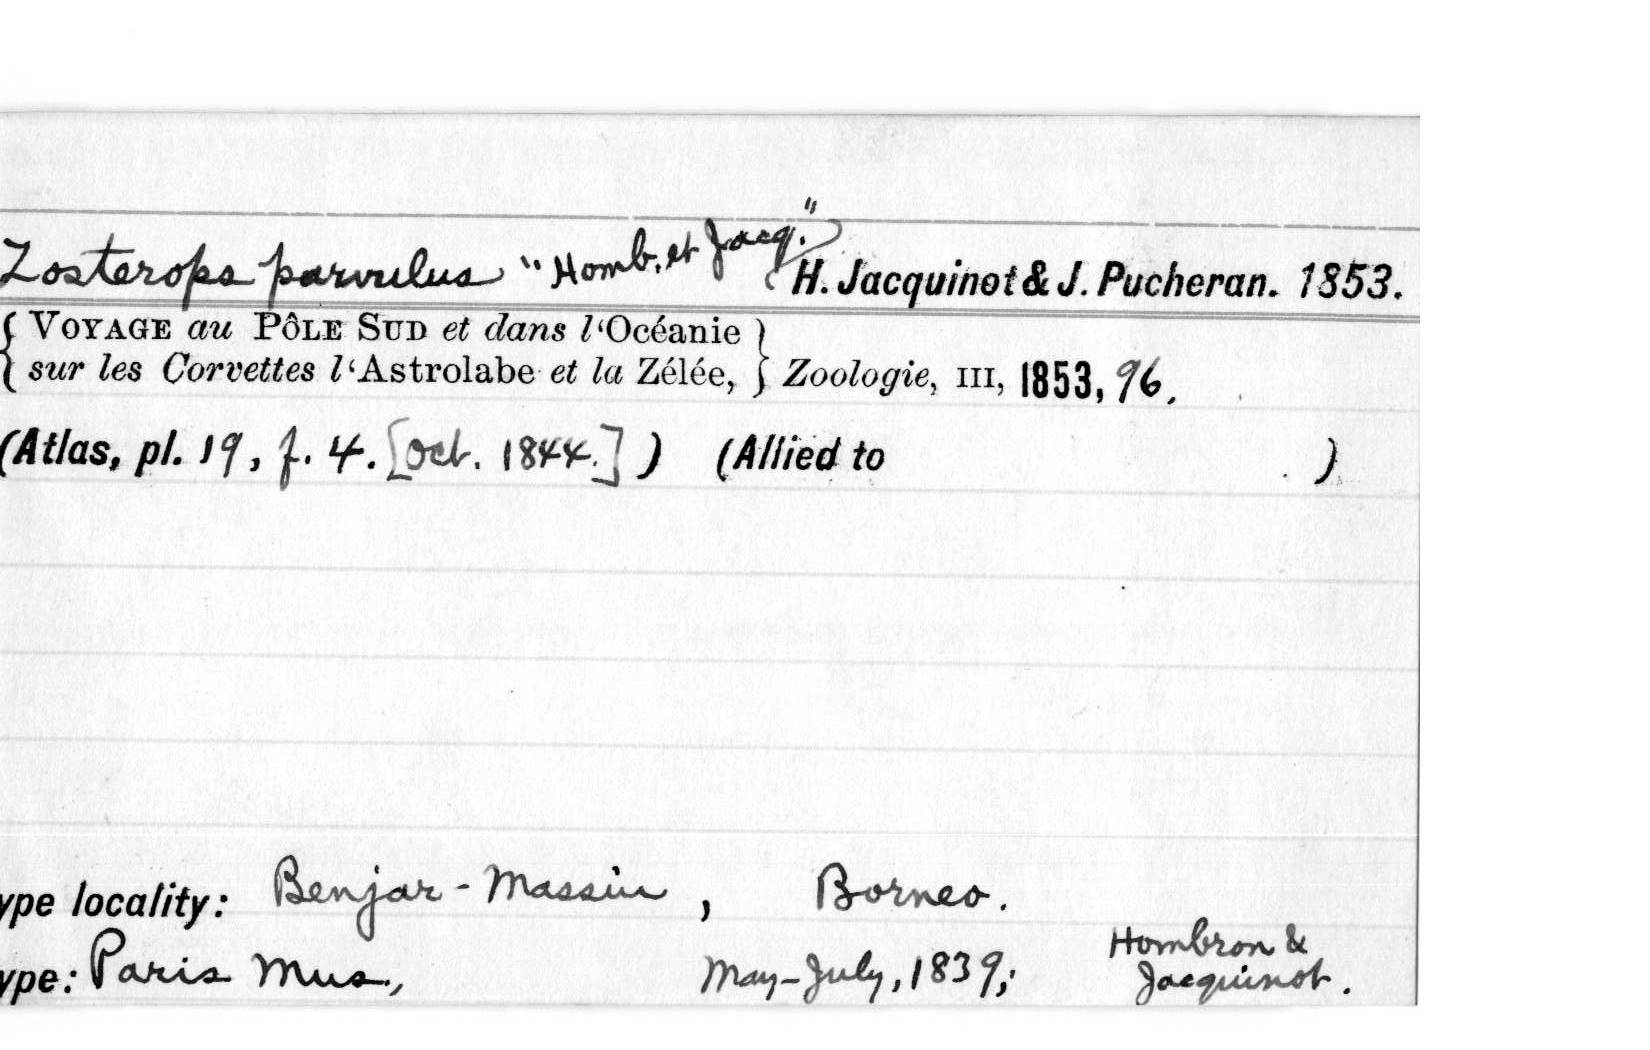 Zosterops parvulus "Homb. et Jacq." H. Jacquinot & J. Pucheran. 1853.
{ VOYAGE au PÔLE SUD et dans l'Océanie }
{ sur les Corvettes l'Astrolabe et la Zélée, } Zoologie, III, 1853, 96.
(Atlas, pl. 19, f. 4. [Oct. 1844.] ) (Allied to )
ype locality: Benjar-Massin , Borneo.
ype: Paris Mus., May-July, 1839; Hombron &
Jacquinot.